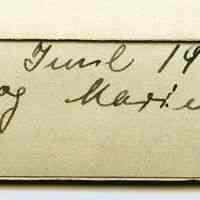 Juul 19
og Marie